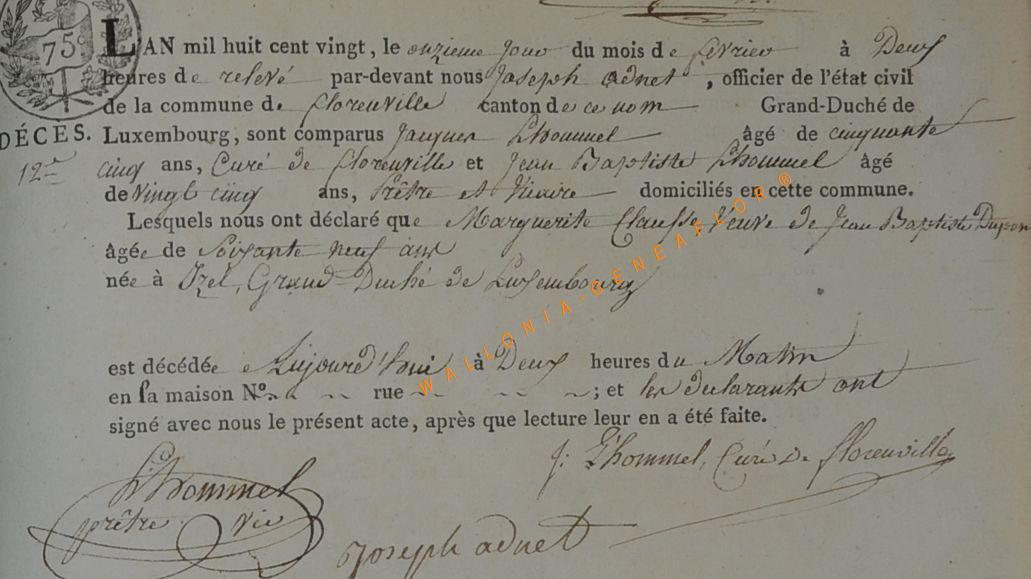 75c
LAN mil huit cent vingt, le onzieme Jour du mois de fevrier à Deux
heures de relevé par-devant nous Joseph adnet, officier de l'état civil
de la commune de florenville canton de ce nom Grand-Duché de
DÉCÈS. Luxembourg, sont comparus Jacques Lhommel âgé de cinquante
12me cinq ans, Curé de florenville et Jean Baptiste Lhommel âgé
de Vingt cinq ans, Prêtre et Vicaire domiciliés en cette commune.
Lesquels nous ont déclaré que Marguerite Clausse Veuve de Jean Baptiste
âgée de Soixante neuf ans
née à Izel, Grand-Duché de Luxembourg
est décédée Aujourd'hui à Deux heures du Matin
en sa maison No. rue ; et les declarants ont
signé avec nous le présent acte, après que lecture leur en a été faite.
J: L'hommel, Curé de florenville
Lhommel
prêtre vic
Joseph adnet
WALLONIA-GENEAFLOR ®